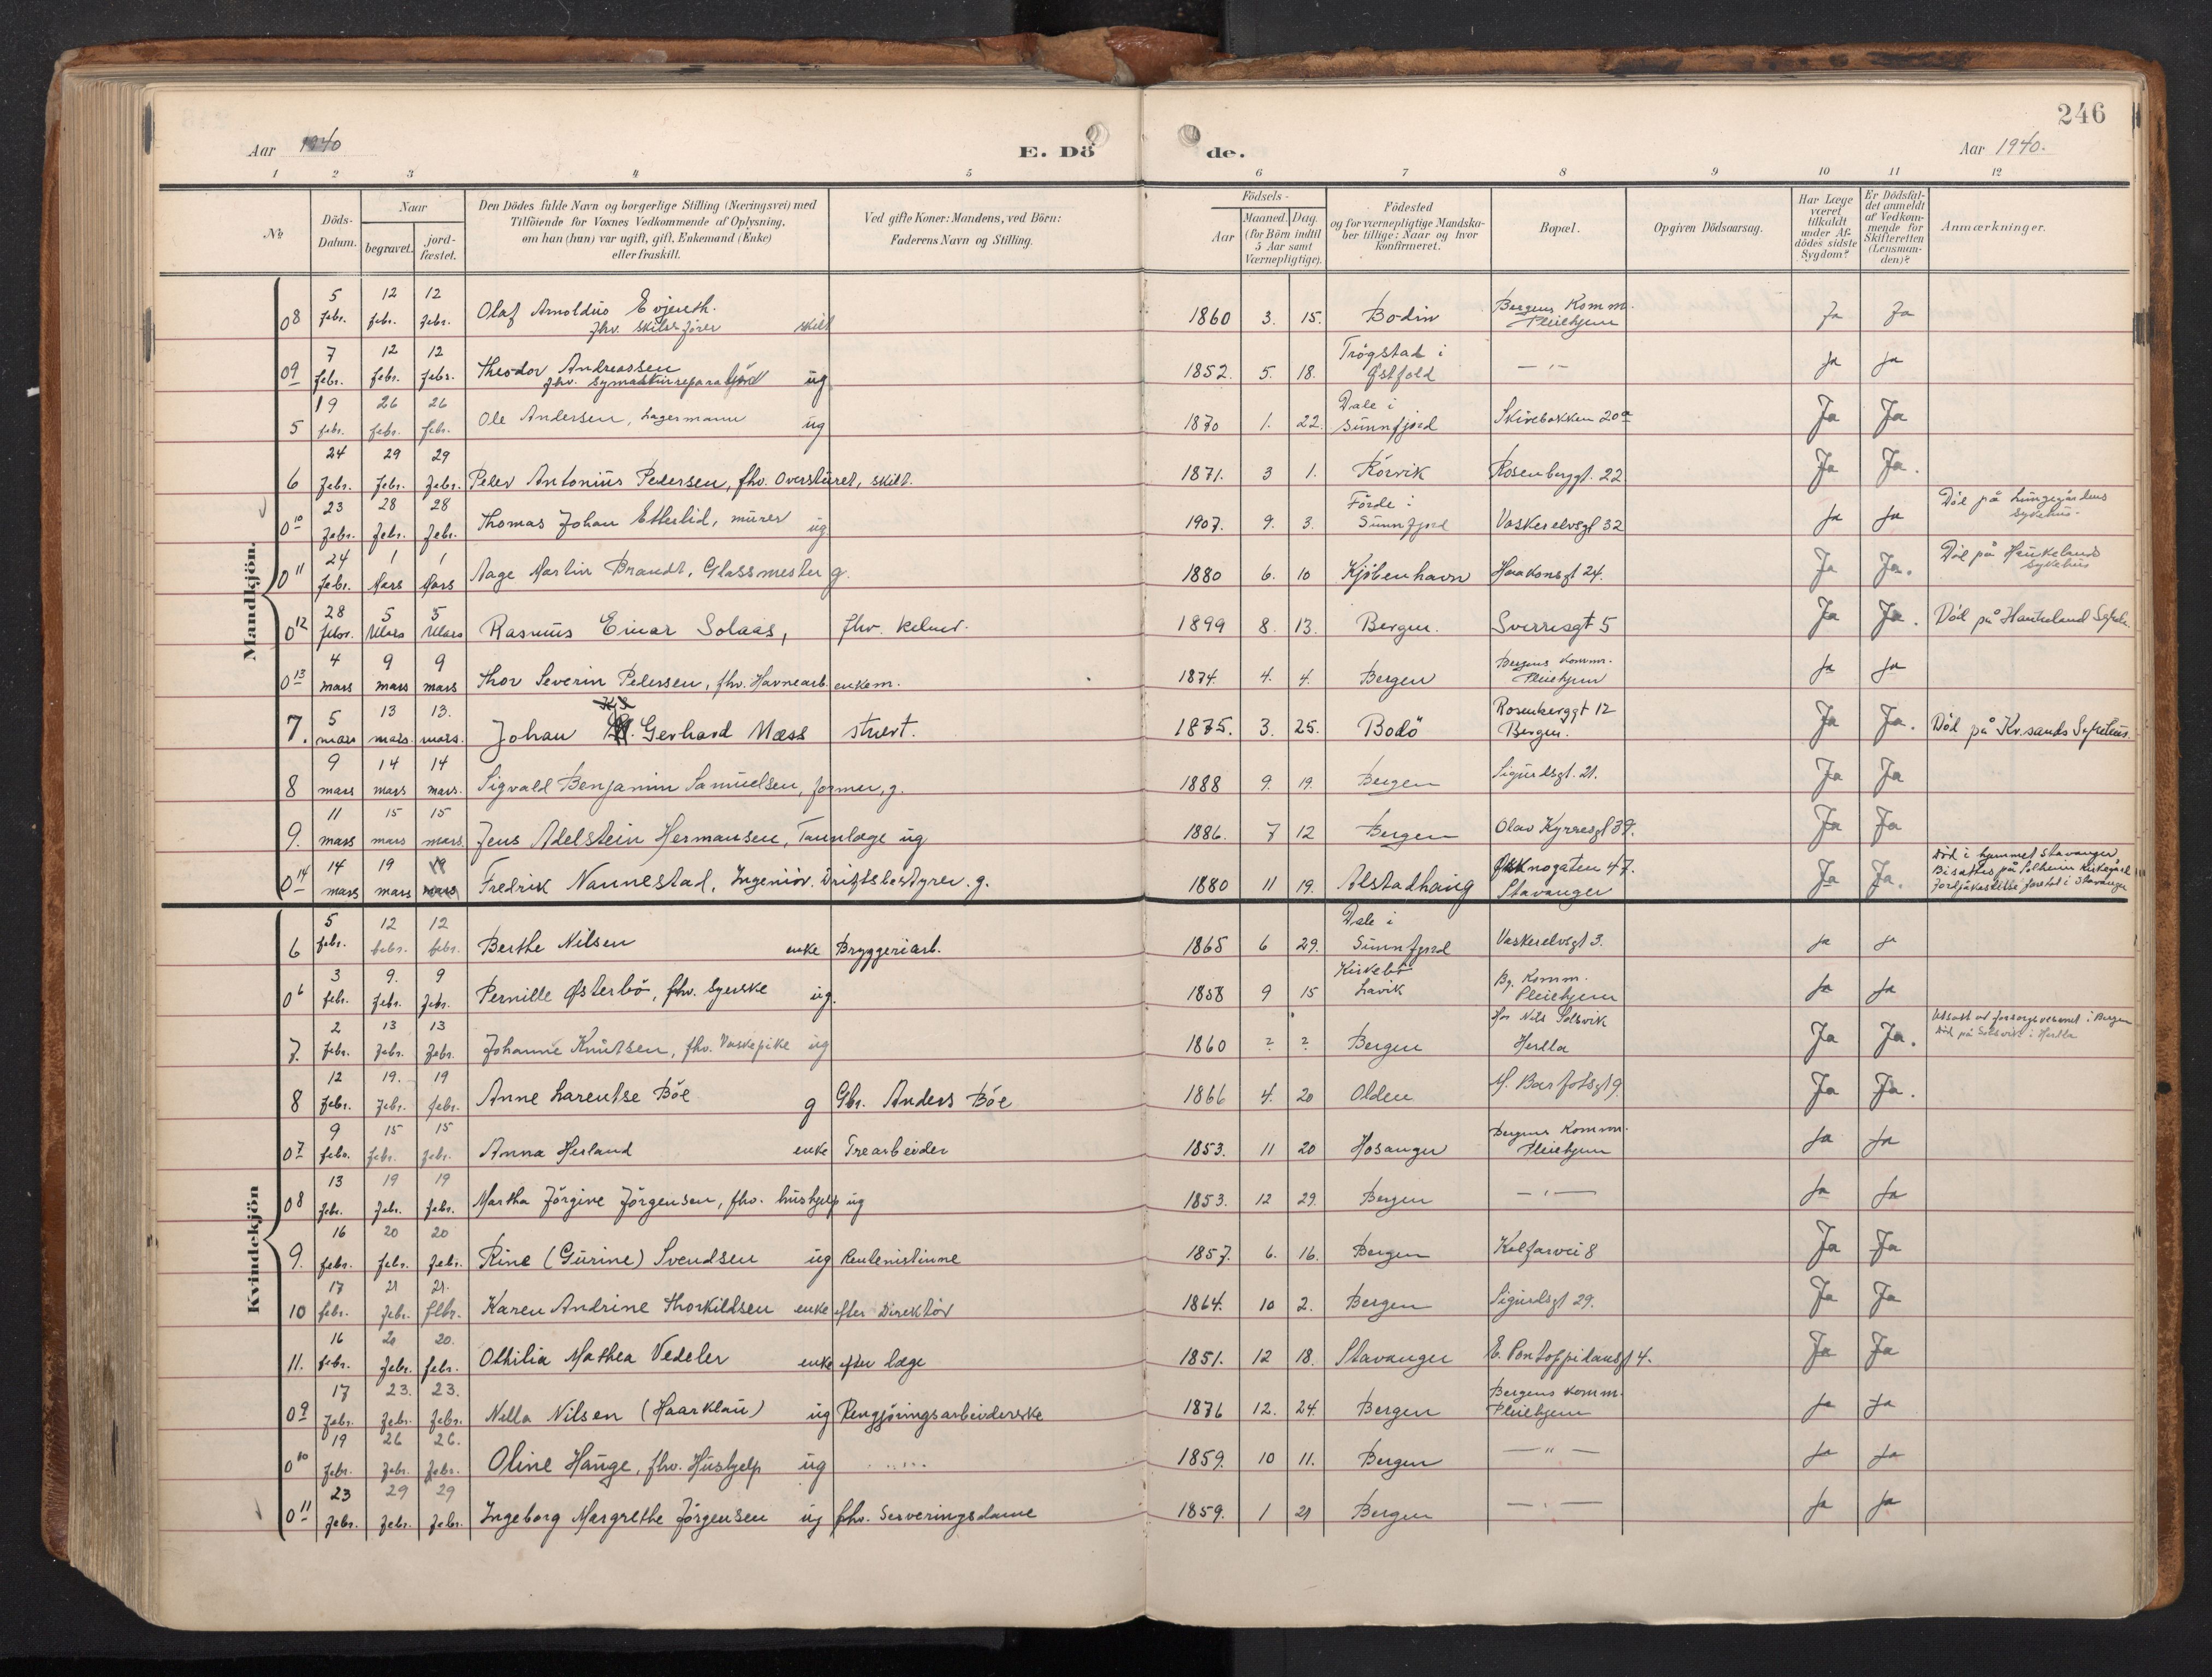 246
Aar 1940
E. Dö
de.
Aar 1940.
1 2 3 4 5 6 7 8 9 10 11 12
No
Döds-Datum.
Naar
begravet.
jord-fæstet.
Den Dödes fulde Navn og borgerlige Stilling (Næringsvei) med
Tilföiende for Voxnes Vedkommende af Oplysning,
om han (hun) var ugift, gift, Enkemand (Enke)
eller fraskilt.
Ved gifte Koner: Mandens, ved Börn:
Faderens Navn og Stilling.
Födsels-
Aar
Maaned. Dag.
(for Börn indtil
5 Aar samt
Værnepligtige).
Födested
og for værnepligtige Mandska-
ber tillige: Naar og hvor
Konfirmeret.
Bopæl.
Opgiven Dödsaarsag.
Har Læge
været
tilkaldt
under Af-
dödes sidste
Sygdom?
Er Dödsfal-
det anmeldt
af Vedkom-
mende for
Skifteretten
(Lensman-
den)?
Anmærkninger.
Mandkjön.
08 5 febr. 12 febr. 12 febr. Olaf Arnoldus Evjenth. fhv. skibsfører skilt 1860 3. 15. Bodin Bergens Komm. Pleiehjem Ja Ja
09 7 febr. 12 febr. 12 febr. Theodor Andreassen fhv. symaskinreparatør ug 1852. 5. 18. Trøgstad i Østfold — " — Ja Ja
5 19 febr. 26 febr. 26 febr. Ole Andersen, Lagermann ug 1870 1. 22. Dale i Sunnfjord Skivebakken 20a Ja Ja
6 24 febr. 29 febr. 29 febr. Peder Antonius Pedersen, fhv. Overstuert, skilt. 1871. 3 1. Rörvik Rosenberggt. 22 Ja Ja.
0 10 23 febr. 28 febr. 28 febr. Thomas Johan Etterlid, murer ug 1907. 9. 3. Förde i Sunnfjord Vaskerelvsgt 32 Ja Ja Död på Lungegårdens sykehus.
0 11 24 febr. 1 Mars 1 Mars Aage Martin Brandt, Glassmester g. 1880 6. 10 Kjöbenhavn Haakonsgt 24. Ja Ja. Död på Haukelands sykehus
0 12 28 febr. 5 Mars 5 Mars Rasmus Einar Solaas, fhv. kelner. 1899 8. 13. Bergen. Sverresgt 5 Ja Ja. Död på Haukeland Sykeh.
0 13 4 mars 9 mars 9 mars Thor Severin Pedersen, fhv. Havnearb. enkem. 1874. 4. 4. Bergen Bergens Komm. Pleiehjem Ja Ja
7. 5 mars 13 mars 13. mars. Johan Gerhard Mæss stuert. 1875. 3. 25. Bodö Rosenberggt 12 Bergen. Ja Ja. Död på Kr.sands Sykehus.
8 9 mars 14 mars 14 mars. Sigvald Benjamin Samuelsen, former, g. 1888 9. 19. Bergen Sigurdsgt. 21. Ja Ja
9. 11 mars 15 mars 15 mars. Jens Adelstein Hermansen, Tannlæge ug 1886. 7 12 Bergen Olav Kyrresgt 39. Ja Ja
0 14 14 mars 19 mars 19 mars Fredrik Nannestad, Ingeniör. Driftsbestyrer. g. 1880 11 19. Alstadhaug 47. Stavanger Ja Ja. Död i hjemmet Stavanger Bisættes på Solheim Kirkegård Jordpåkastelse foretat i Stavanger
Kvindekjön
6 5 febr. 12 febr. 12 febr. Berthe Nilsen enke Bryggeriarb. 1865 6 29. Dale i Sunnfjord Vaskerelvsgt 3. Ja Ja
0 6 3 febr. 9. febr. 9 febr. Pernille Østerbö, fhv. syerske ug. 1858 9 15 Kirkebö Lavik Bg. Komm. Pleiehjem Ja Ja
7. 2 febr. 13 febr. 13 febr. Johanne Knutsen, fhv. Vaskepike ug 1860 ? ? Bergen Hos Nils Solsvik Herdla Ja Ja. Utsatt av forsorgsvesenet i Bergen Död på Solsvik i Herdla
8 12 febr. 19. febr. 19 febr. Anne Larentse Böe g Gbr. Anders Böe 1866 4. 20 Olden M. Barfotsgt 9 Ja Ja.
0 7 9 febr. 15 febr. 15 febr. Anna Herland enke Trearbeider 1853. 11 20 Hosanger Bergens Komm. Pleiehjem Ja Ja
08 13 febr. 19 febr. 19 febr. Martha Jörgine Jörgensen, fhv. hushjelp ug 1853. 12 29. Bergen — " — Ja Ja
9. 16 febr. 20 febr. 20 febr. Rine (Gurine) Svendsen ug Rentenistinne 1857. 6. 16. Bergen Kalfarvei 8 Ja Ja
10 17 febr. 21 febr. 21. febr. Karen Andrine Thorkildsen enke efter Direktör 1864. 10 2. Bergen Sigurdsgt 29. Ja Ja
11. 16 febr. 20 febr. 20. febr. Othilia Mathea Vedeler enke efter læge 1851. 12 18. Stavanger E. Pontoppidansgt 4. Ja Ja
09 17 febr. 23. febr. 23. febr. Nilla Nilsen (Haarklau) ug Rengjöringsarbeiderske 1876 12. 24. Bergen Bergens Komm. Pleiehjem Ja Ja
0 10 19 febr. 26 febr. 26. febr. Oline Hauge, fhv. Hushjelp ug 1859. 10 11. Bergen — " — Ja Ja
0 11 23 febr. 29 febr. 29 febr. Ingeborg Margrethe Jörgensen ug fhv. Serveringsdame 1859. 1 21 Bergen — " — Ja Ja